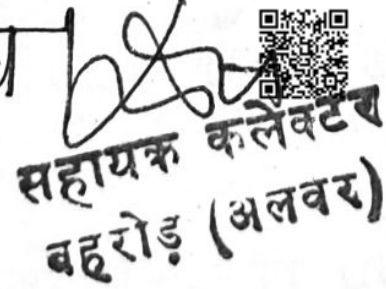 सहायक कलेक्टर
बहरोड़ (अलवर)